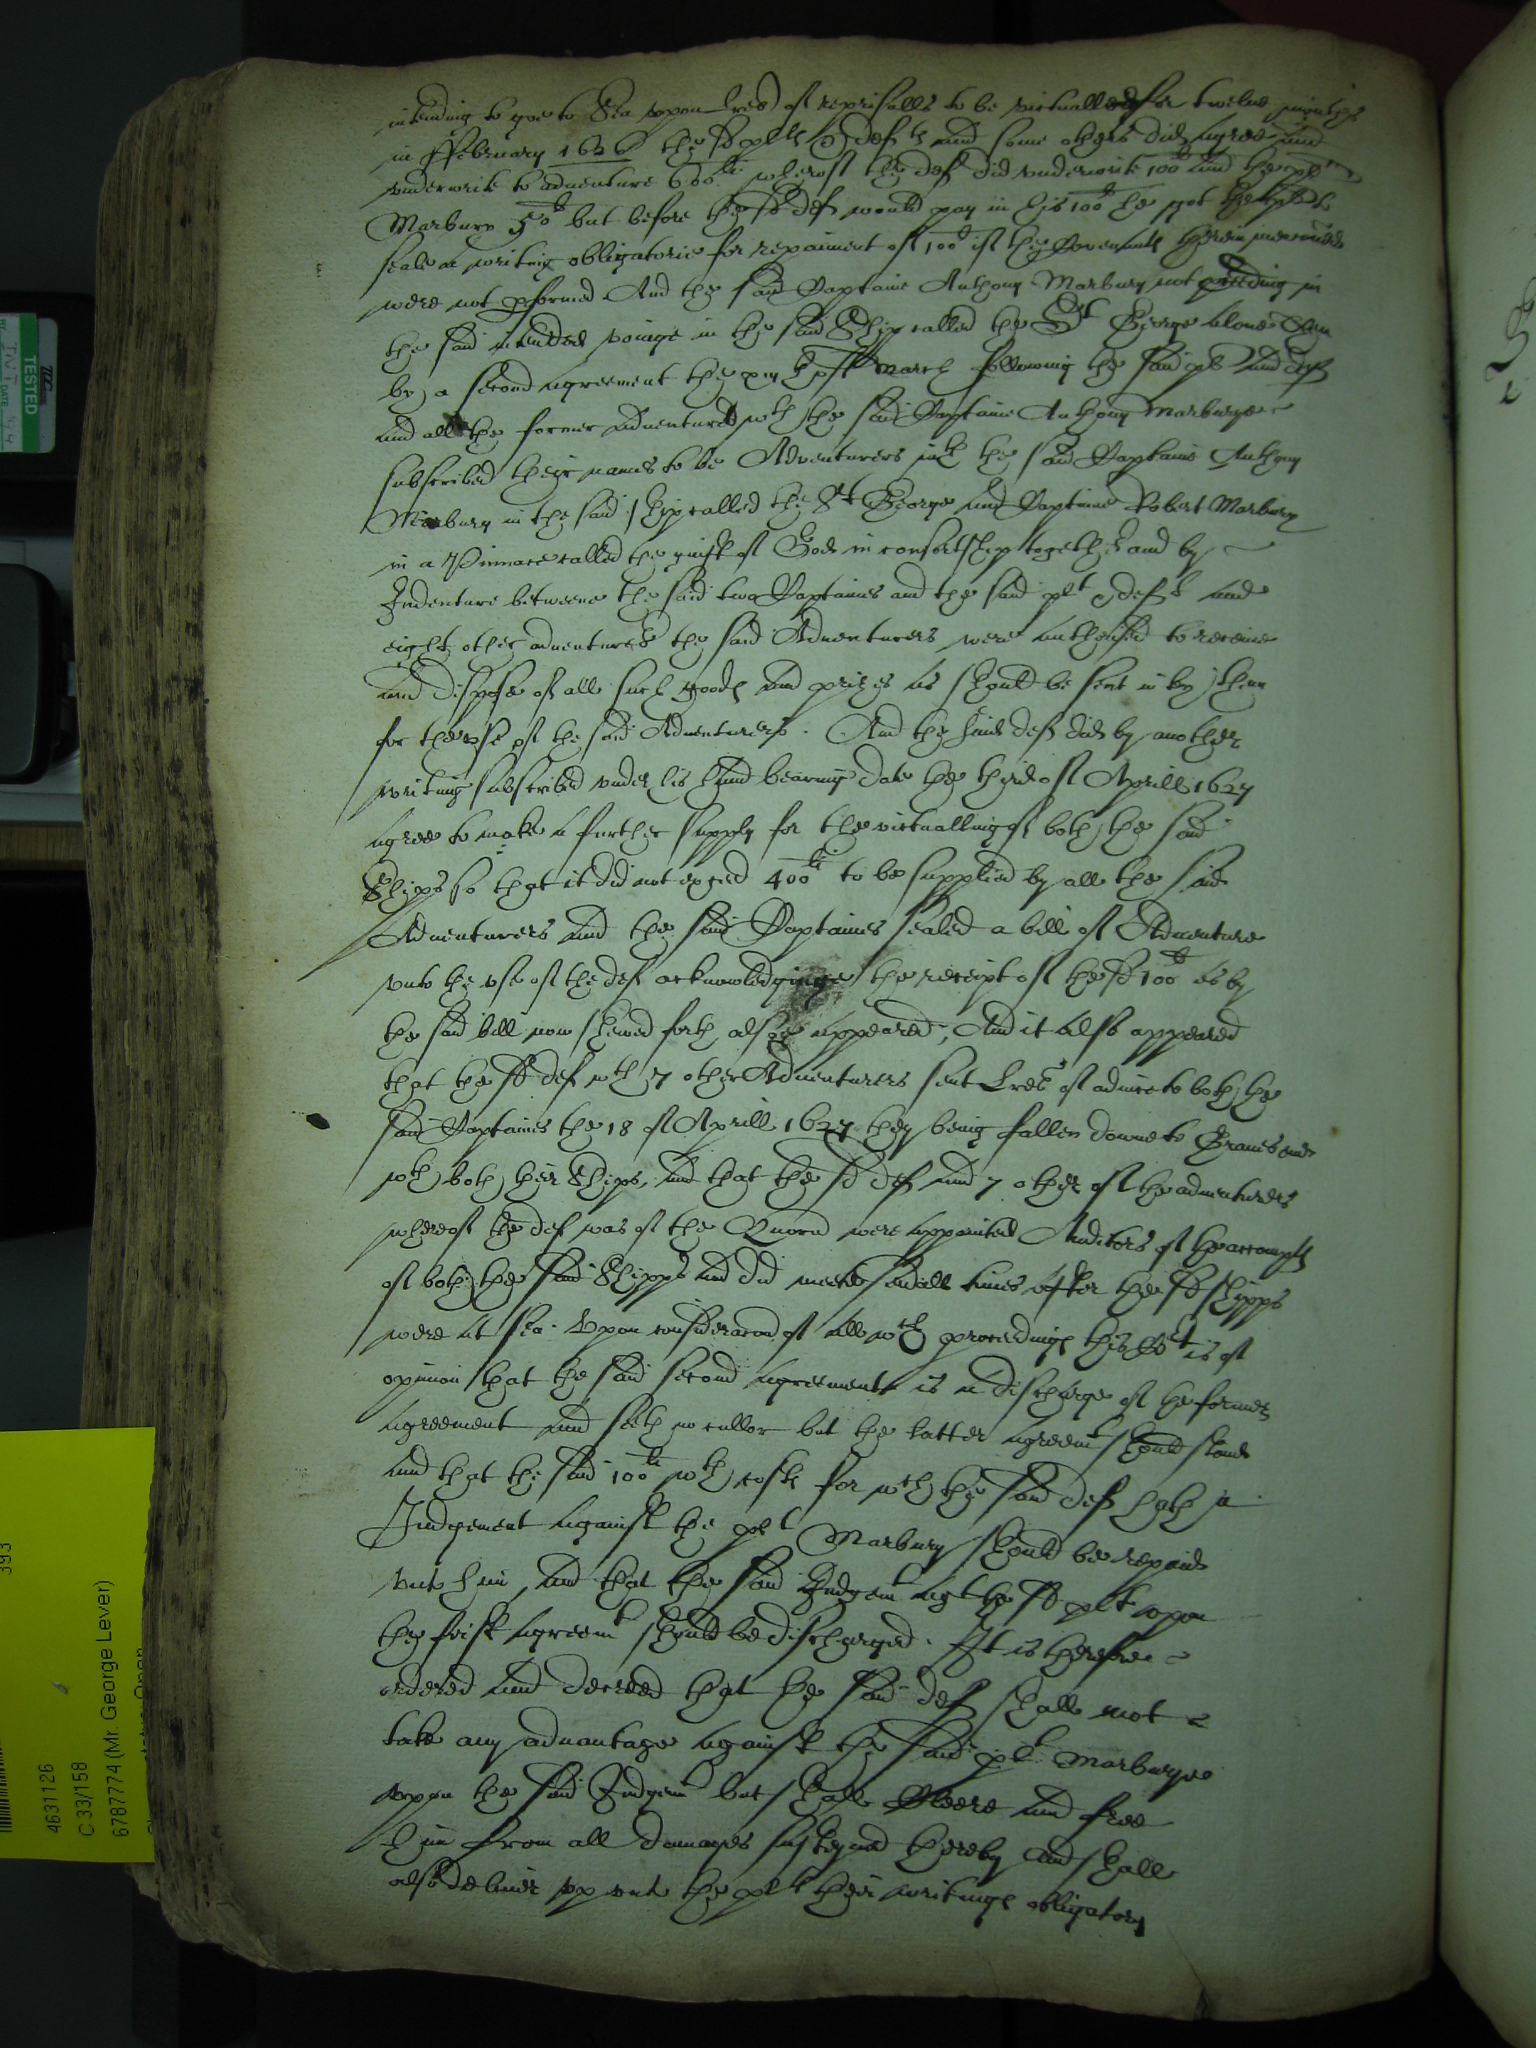 intending to goe to Sea vpon lres of reprisalls to be victualled for twelue months
in ffebruary 1626 the sd plt & deft and some others did agree and
vnderwrite to aduenture 600li wherof the def did vnderwrite 100li and the plt
Marbury 50li but before the sd def would pay in his 100li he got the plts to
seale a writing obligatorie for repaiment of 100li if the Covenants therein menconed
were not pformed And the said Captaine Anthony Marbury not pceeding in
the said intended voiage in the said Ship called the St George alone
by a second agreement the March following the said plt and def
and all the former aduenturers wth the said Captaine Anthony Marburye
subscribed their names to be Adventurers wth the said Captaine Anthony
Marbury in the said ship called the St George and Captaine Robert Marbury
in a Pinnace called the guift of God in consortship together and by
Indenture betweene the said two Captaines and the said plt & deft and
eight other aduenturers the said Aduenturers were authorised to receive
and dispose of all such goods and prizes as should be sent in by them
for the vse of the said Aduenturers. And the said def did by another
writing subscribed vnder his hand bearing date the third of Aprill 1627
agree to make a further supply for the victualling of both the said
Shipps so that it did not exceed 400li to be supplied by all the said
Aduenturers and the said Captaines sealed a bill of Aduenture
vnto the vse of the def acknowledginge the receipt of the sd 100li as by
the said bill now shewed forth alsoe appeared, And it also appeared
that the sd def wth 7 other Aduenturers sent lres of aduice to both the
said Captaines the 18 of Aprill 1627 they being fallen downe to Grauesend
wth both their Shipps, and that the sd def and 7 other of the aduenturers
whereof the def was of the Quorū were appointed Auditors of the accompts
of both the said Shipps and did meete seuall times after the sd shipps
were at sea. Vpon consideracon of all wch proceedings this Cort is of
opinion that the said second agreement is a discharge of the former
agreement and seeth no cullor but the latter agreemt should stand
and that the said 100li wth costs for wch the said def hath a
Judgement against the plt Marbury should be repaid
vnto him, and that the said Judgmt agt the sd plt vpon
the first agreemt should be discharged. It is therefore
ordered and decreed that the said def shall not
take any aduantage against the said plt Marburye
vpon the said Judgmt but shall cleere and free
him from all damages susteyned thereby and shall
also deliuer vp vnto the plt their writings obligatory
TESTED
DATE
393
4631126
C 33/158
6787774 (Mr. George Lever)